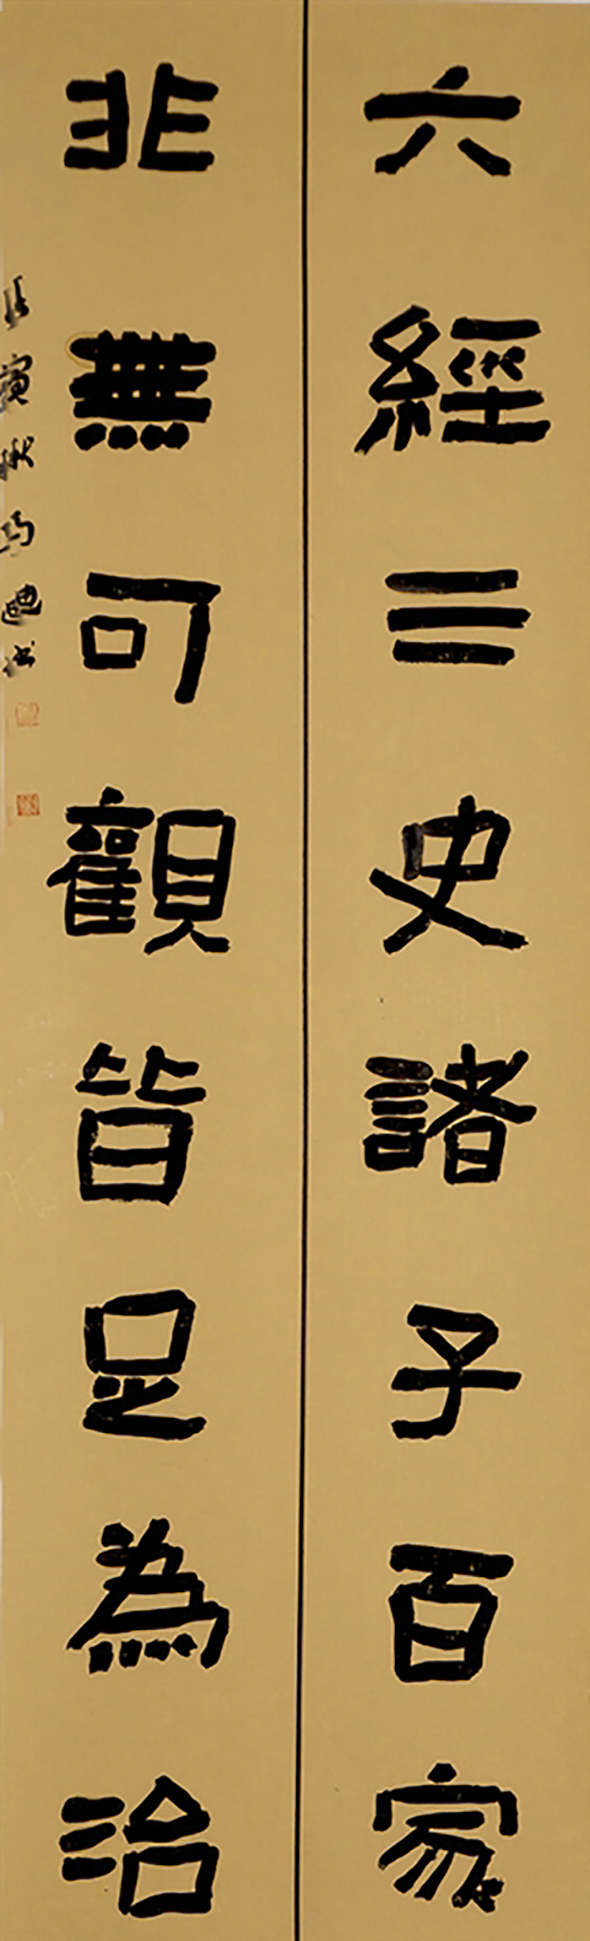 六經三史諸子百家
非無可觀皆足為治